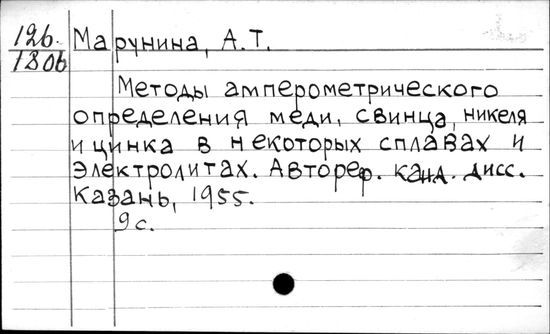 126. Марунина, А.Т.
1806
Методы амперометрического
определения меди, свинца, никеля
и цинка в некоторых сплавах и
электролитах. Автореф. канд. дисс.
Казань, 1955.
9 с.